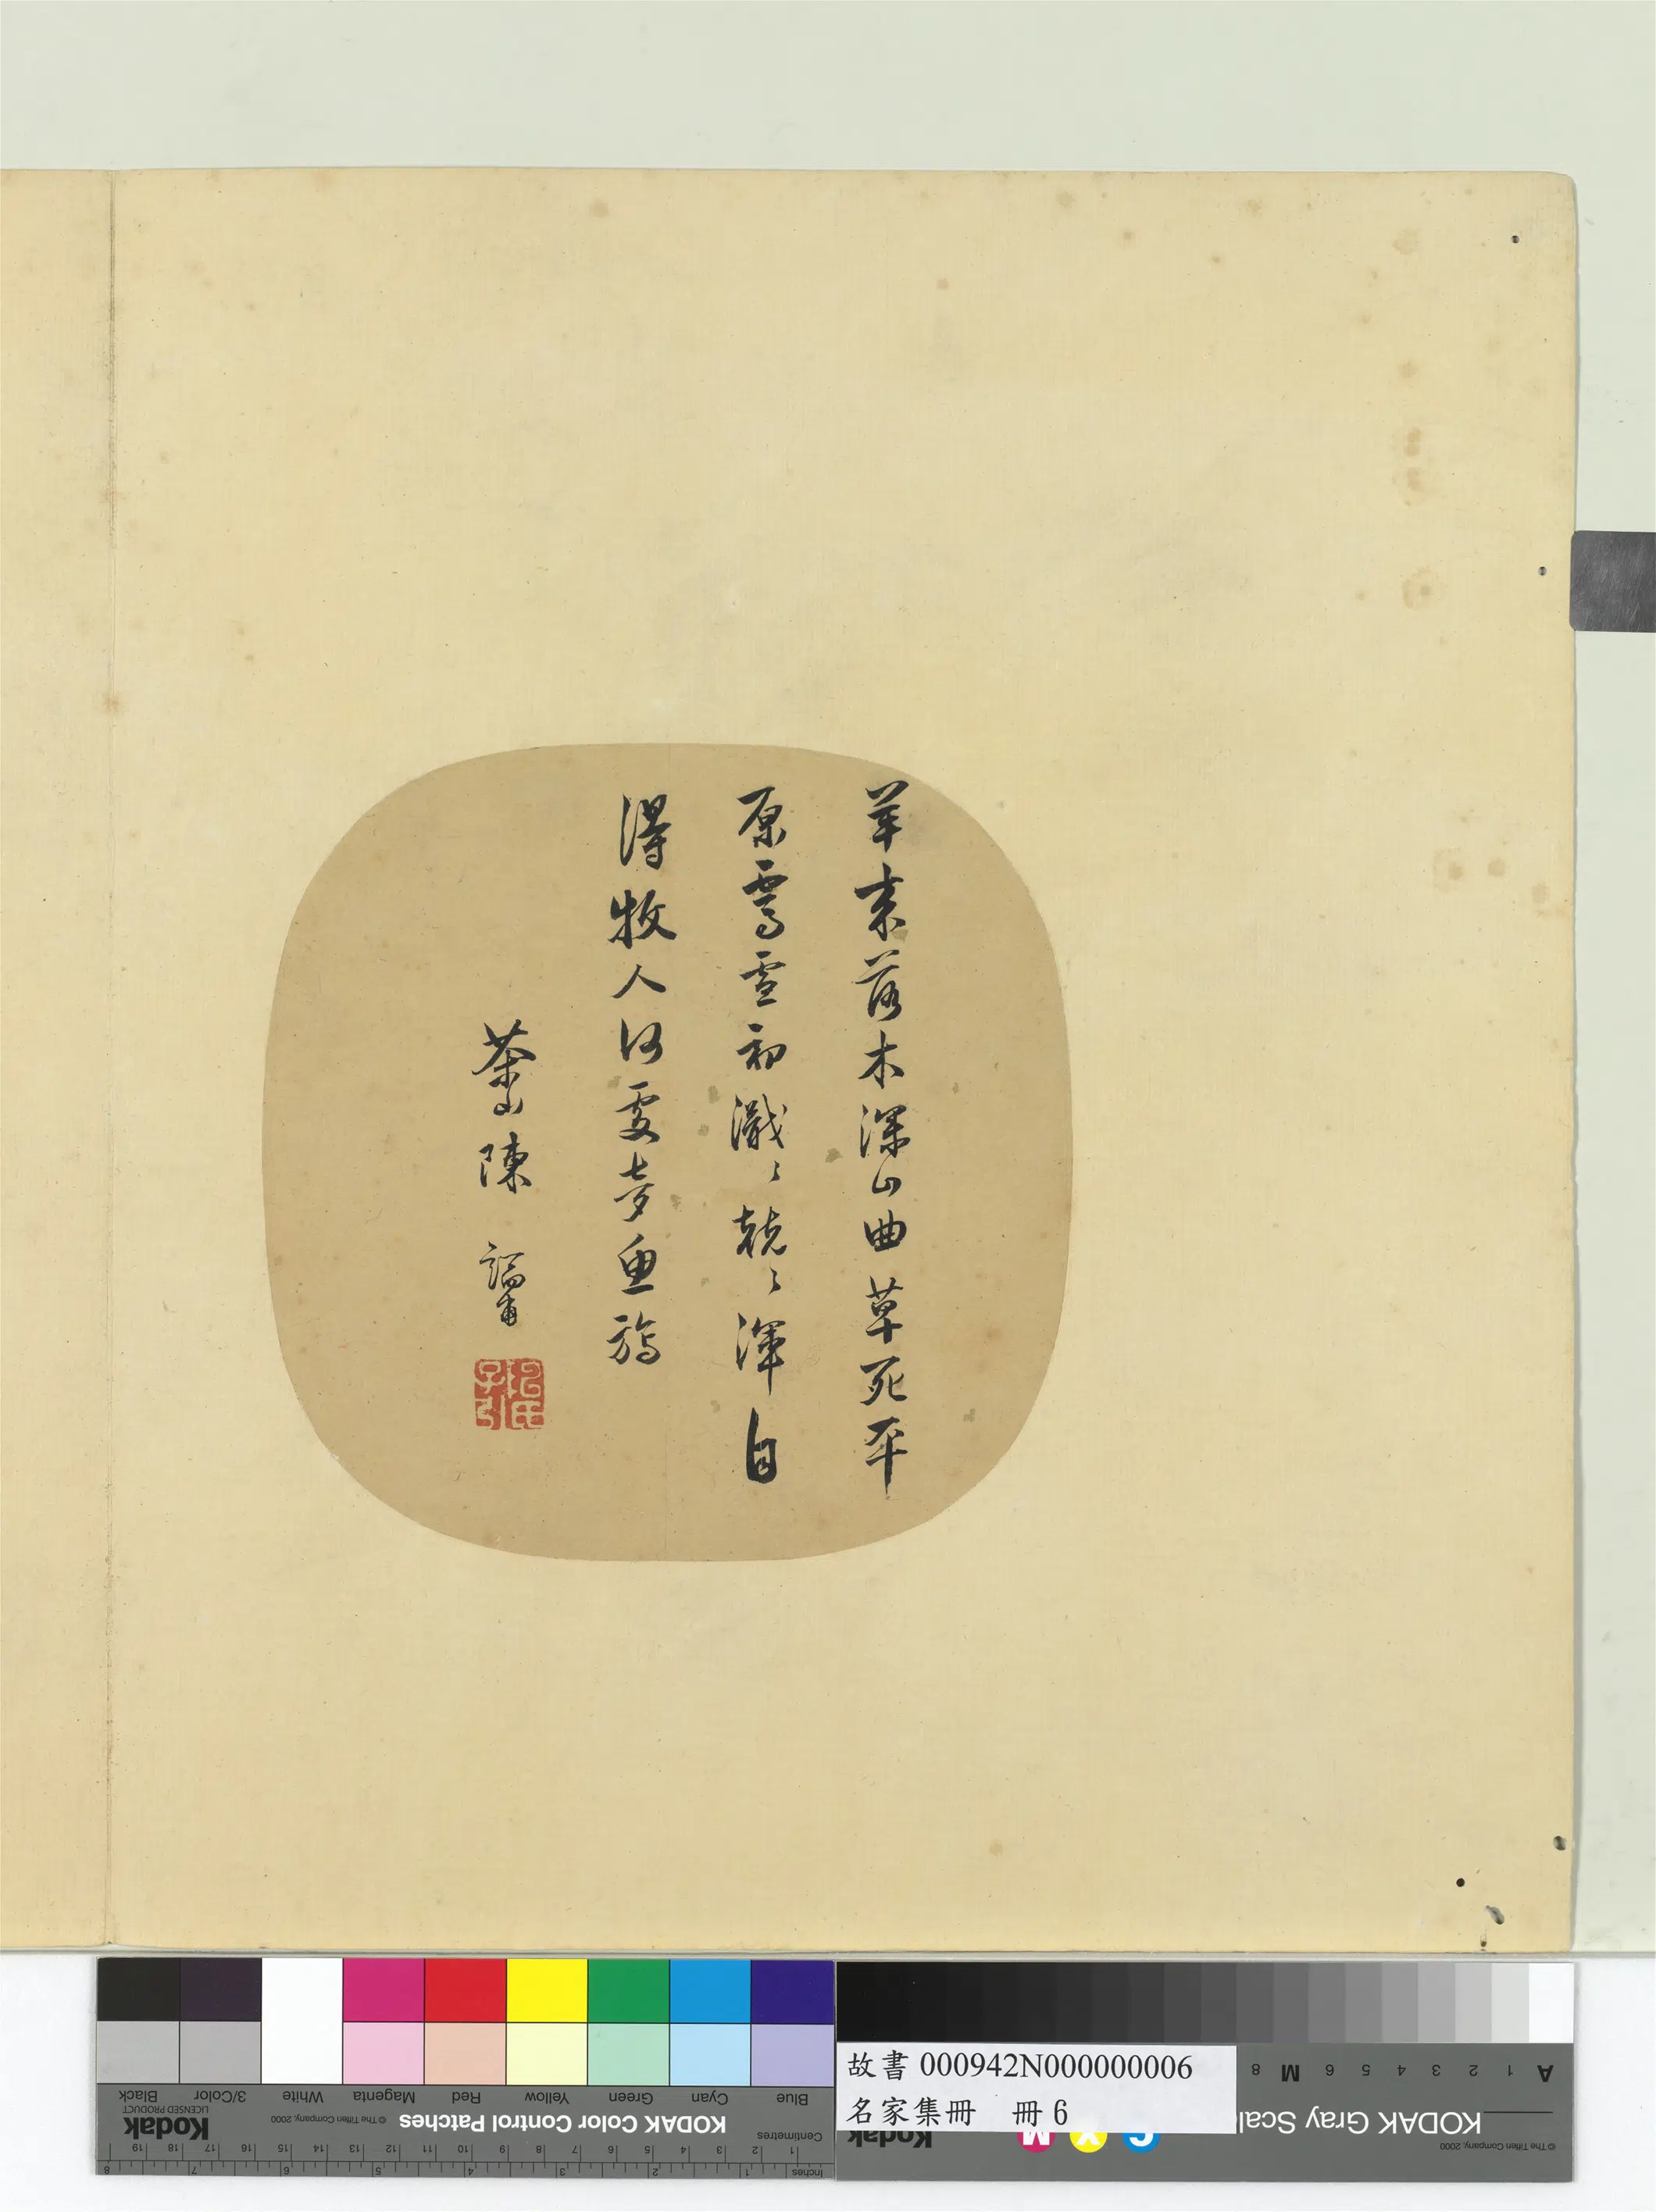 羊來落木深山曲草死平
原霽雪初濈〻兢〻渾自
得牧人何處夢魚旐
茶山陳
故書 000942N000000006
名家集冊 冊 6
KODAK Color Control Patches
© The Tiffen Company, 2000
Kodak
LICENSED PRODUCT
Blue
Cyan
Green
Yellow
Red
Magenta
White
3/Color
Black
Centimetres
Inches
KODAK Gray Scal
© The Tiffen Company, 2000
Kodak
C
Y
M
A 1 2 3 4 5 6 M 8
1 2 3 4 5 6 7 8 9 10 11 12 13 14 15 16 17 18 19
1 2 3 4 5 6 7 8